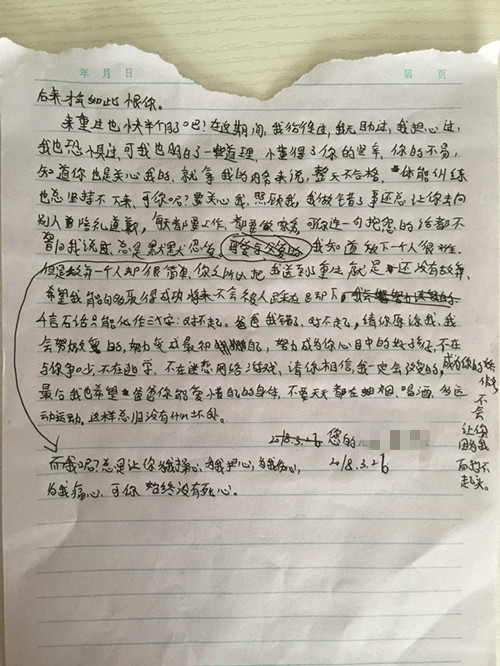 年 月 日 第 页
后来才会如此恨你。
来重生也快半个月了吧!在这期间,我彷徨过,我无助过,我担心过,
我也恐惧过,可我也明白了一些道理,懂得了你的艰辛,你的不易,
知道你也是关心我的,就拿我的内务来说,整天不合格,体能训练
也总坚持不下来,可你呢?要关心我,照顾我,我做错了事还总让你去向
别人道歉,每天都要上班,都要做家务,可你连一句抱怨的话都不
曾向我说,总是默默忍受,我知道放下一个人很难,
但是放弃一个人却很简单,你之所以把我送到重生就是还没有放弃,
希望我能够取得成功将来不会被人踩在脚下,
千言万语只能化作三个字:对不起。爸爸我错了,对不起,请你原谅我,我
会努力改变的,努力变成最初的,努力成为你心目中的好孩子,不在
与你争吵,不在逃学,不在迷恋网络游戏,请你相信,我一定会改变的,
成为你的骄傲
不会让你因为我而抬不起头。
最后我也希望爸爸你能爱惜自己的身体,不要天天都在抽烟、喝酒,多运
动运动,这样总归没有什么坏处。
2018.3.26 您的
而我呢?总是让你为我操心,为我担心,为我伤心, 2018.3.26
为我痛心,可你始终没有死心。